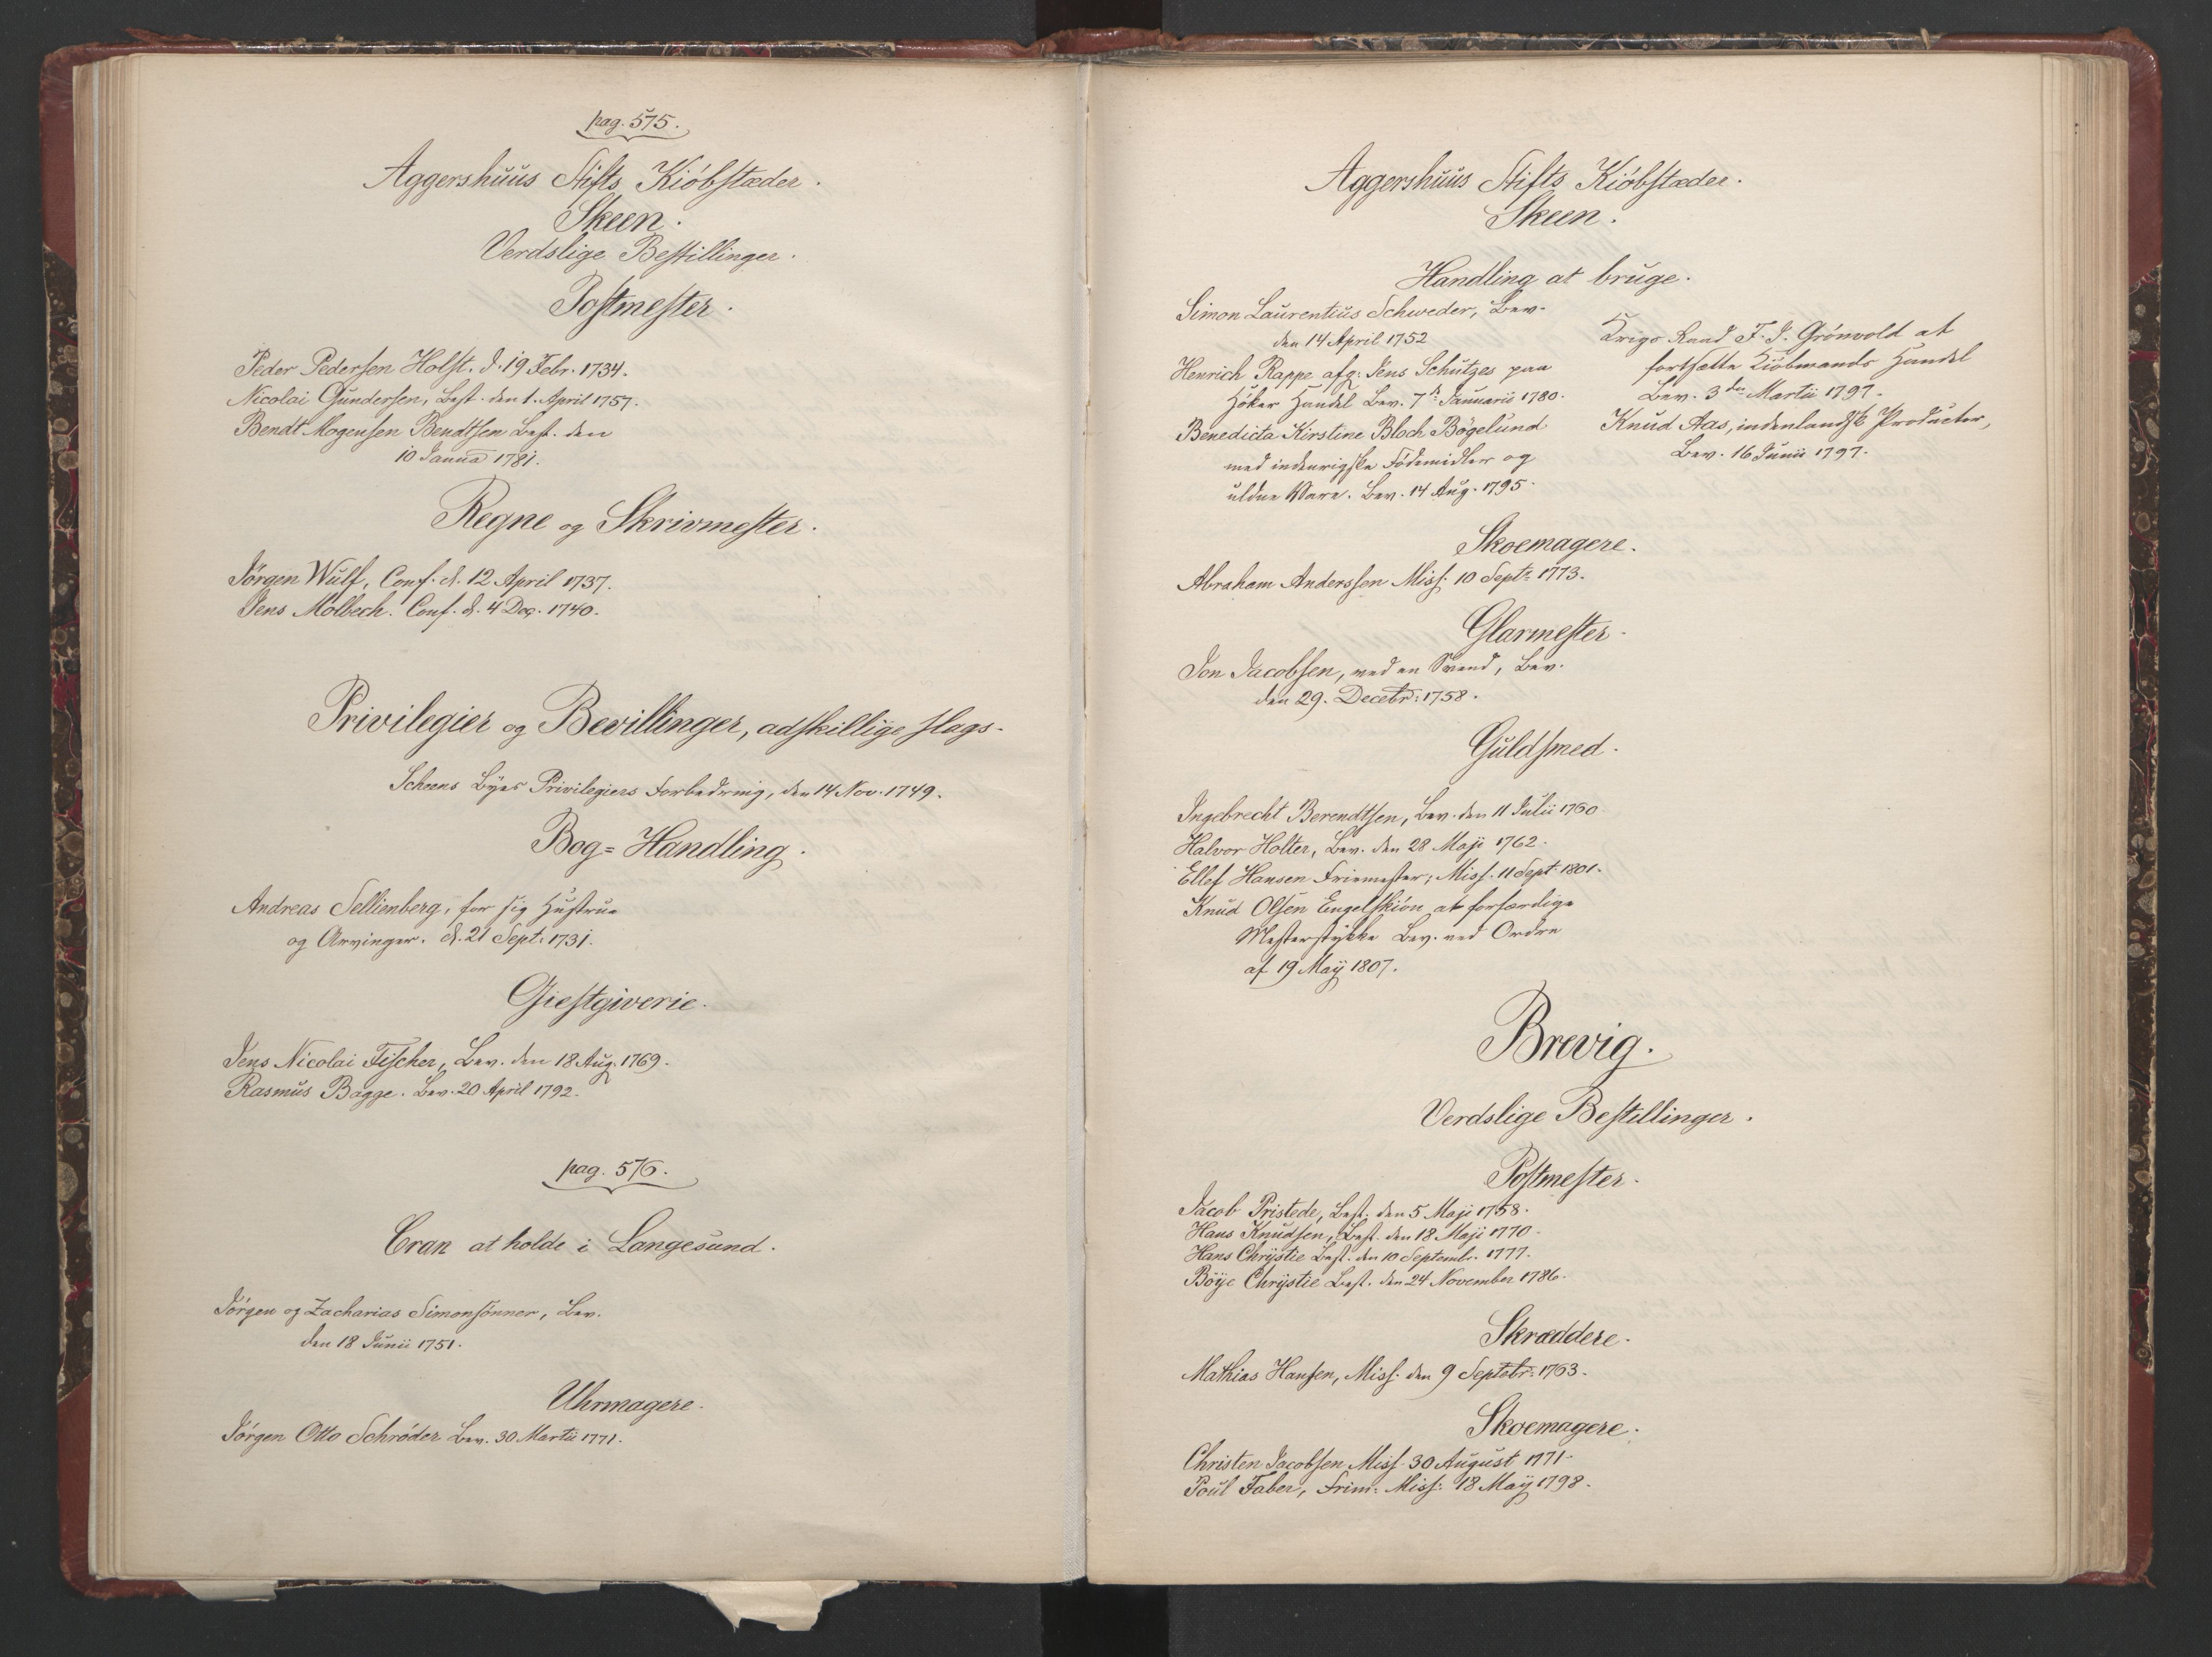 pag. 575.
Aggershuus Stifts Kiöbstæder.
Skeen.
Verdslige Bestillinger.
Postmester.
Peder Pedersen Holst. d. 19 Febr. 1734.
Nicolai Gundersen, Best. den 1. April 1757.
Bendt Mogensen Bendtsen Best. den
10 Janua 1781.
Regne og Skrivmester.
Jörgen Wulf, Conf. d. 12 April 1737.
Jens Molbech. Conf. d. 4 Dec. 1740.
Privilegier og Bevillinger, adskillige slags.
Scheens Byes Privilegiers Forbedring, den 14 Nov. 1749.
Bog=Handling.
Andreas Sellienberg, for sig Hustrue
og Arvinger. d. 21 Sept. 1731.
Giestgiverie.
Jens Nicolai Fischer, Bev. den 18 Aug. 1769.
Rasmus Bagge. Bev. 20 April 1792.
pag. 576.
Cran at holde i Langesund.
Jörgen og Zacharias Simonsönner, Bev.
den 18 Junii 1751.
Uhrmagere.
Jörgen Otto Schröder Bev. 30 Martii 1771.
Aggershuus Stifts Kiöbstæder.
Skeen.
Handling at bruge.
Simon Laurentius Schweder, Bev.
den 14 April 1752
Henrich Rappe afg: Jens Schutzes paa
Höker Handel Bev. 7de Januarii 1780.
Benedicta Kirstine Bloch Bögelund
med indenrigske Födemidler og
uldne Vare. Bev. 14 Aug. 1795.
Krigs Raad F. J. Grönvold at
fortsætte Kiöbmands Handel
Bev. 3den Martii 1797.
Knud Aas, indenlandske Producter,
Bev. 16 Junii 1797.
Skoemagere.
Abraham Anderssen Miss: 10 Septr 1773.
Glarmester.
Jon Jacobsen, med en Svend, Bev.
den 29. Decebr: 1758.
Guldsmed.
Ingebrecht Berendtsen, Bev. den 11 Julii 1760.
Halvor Holter, Bev. den 28 Maji 1762.
Ellef Hansen Friemester; Miss. 11 Sept. 1801.
Knud Olsen Engelskiön at forfærdige
Mesterstykke Bev. ved Ordre
af 19 Maij 1807.
Brevig.
Verdslige Bestillinger.
Postmester.
Jacob Pristede, Best. den 5 Maji 1758.
Hans Knudsen, Best. den 18 Maji 1770.
Hans Chrÿstie Best. den 10 Septemb. 1777.
Böÿe Chrÿstie Best. den 24 November 1786.
Skræddere.
Mathias Hansen, Miss. den 9 Septebr: 1763.
Skoemagere.
Christen Jacobsen Miss. 30 August 1771.
Poul Faber, Frim: Miss: 18 Maij 1798.